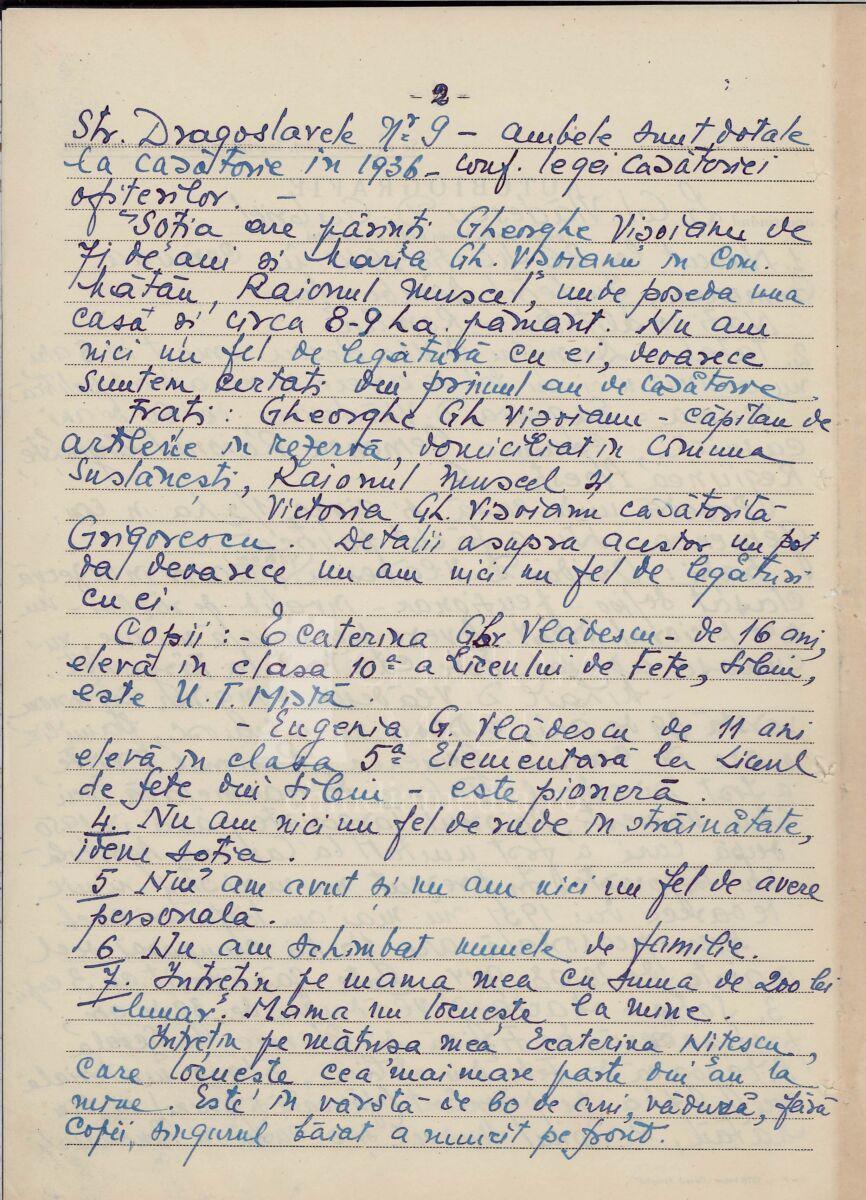 - 2 -
Str. Dragoslavele Nr. 9 - ambele sunt dotale
la casătorie in 1936 - conf. legei casătoriei
ofiterilor. -
Soția are părinți Gheorghe Vișoianu de
71 de ani și Maria Gh. Vișoianu in Com.
Hătău, Raionul Muscel, unde poseda una
casă și circa 8-9 ha. pământ. Nu am
nici un fel de legătură cu ei, deoarece
suntem certați din primul an de casătorie
Frați: Gheorghe Gh Vișoianu - căpitan de
artilerie in rezervă, domiciliat in Comuna
Suslănești, Raionul Muscel
Victoria Gh. Vișoianu casătorită
Grigorescu. Detalii asupra acestor nu pot
da deoarece nu am nici un fel de legături
cu ei.
Copii: - Ecaterina Vlădescu - de 16 ani,
elevă in clasa 10ª a Liceului de Fete, Sibiu,
este U.T.Mistă.
- Eugenia G. Vlădescu de 11 ani
elevă in clasa 5ª Elementară la Liceul
de fete din Sibiu - este pioneră.
4. Nu am nici un fel de rude in străinătate,
idem soția.
5 Nu am avut și nu am nici un fel de avere
personală.
6 Nu am schimbat numele de familie.
7. Intrețin pe mama mea cu suma de 200 lei
lunar. Mama nu locuește la mine.
Intrețin pe mătușa mea Ecaterina Nițescu,
care locuește cea mai mare parte din an la
mine. Este in vârstă de 60 de ani, văduvă, fără
copii, singurul băiat a murit pe front.